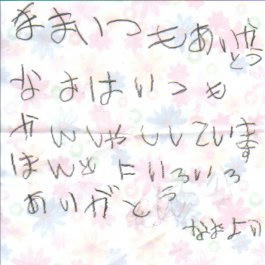 ままいつもありがとう
なおはいつも
かんしゃしています
ほんとにいろいろ
ありがとう
なおより